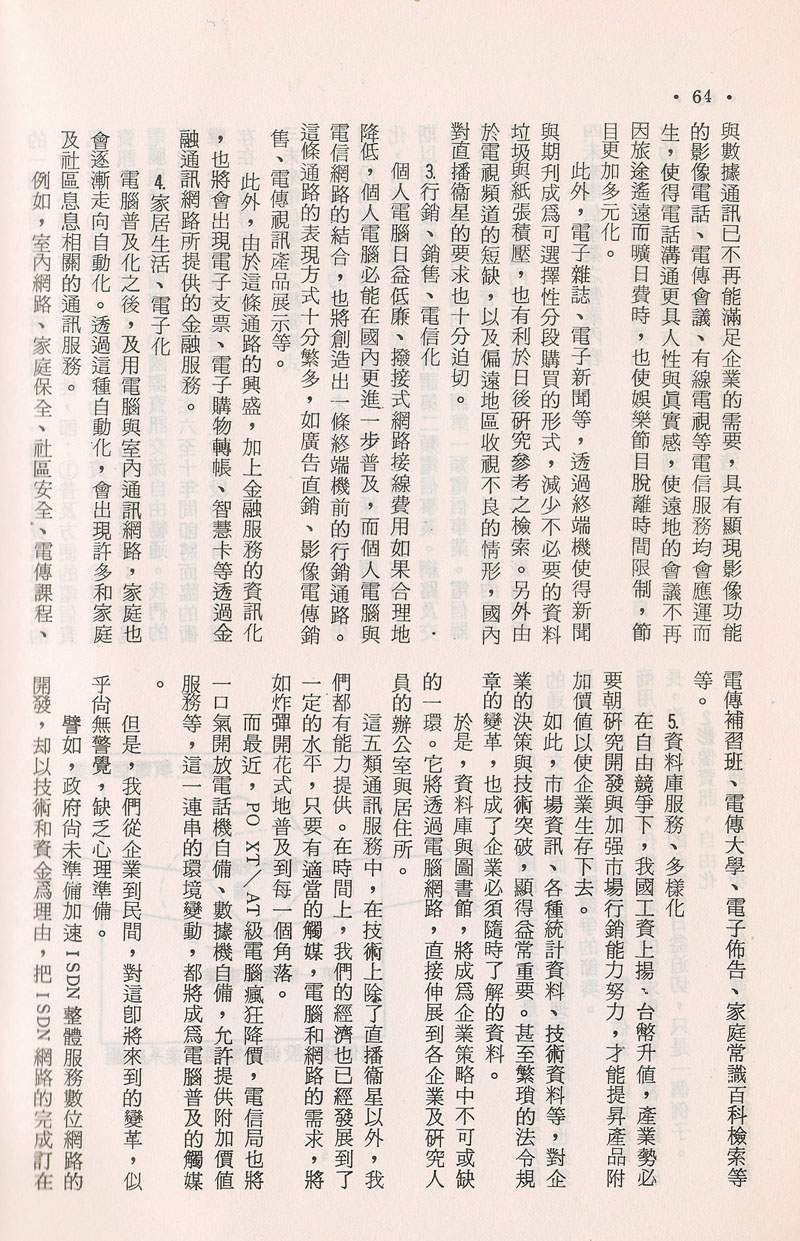 • 64 •
與數據通訊已不再能滿足企業的需要，具有顯現影像功能
的影像電話、電傳會議、有線電視等電信服務均會應運而
生，使得電話溝通更具人性與眞實感，使遠地的會議不再
因旅途遙遠而曠日費時，也使娛樂節目脫離時間限制，節
目更加多元化。
此外，電子雜誌、電子新聞等，透過終端機使得新聞
與期刊成爲可選擇性分段購買的形式，減少不必要的資料
垃圾與紙張積壓，也有利於日後研究參考之檢索。另外由
於電視頻道的短缺，以及偏遠地區收視不良的情形，國內
對直播衞星的要求也十分迫切。
3.行銷、銷售、電信化
個人電腦日益低廉、撥接式網路接線費用如果合理地
降低，個人電腦必能在國內更進一步普及，而個人電腦與
電信網路的結合，也將創造出一條終端機前的行銷通路。
這條通路的表現方式十分繁多，如廣告直銷、影像電傳銷
售、電傳視訊產品展示等。
此外，由於這條通路的興盛，加上金融服務的資訊化
，也將會出現電子支票、電子購物轉帳、智慧卡等透過金
融通訊網路所提供的金融服務。
4.家居生活、電子化
電腦普及化之後，及用電腦與室內通訊網路，家庭也
會逐漸走向自動化。透過這種自動化，會出現許多和家庭
及社區息息相關的通訊服務。
例如，室內網路、家庭保全、社區安全、電傳課程、
電傳補習班、電傳大學、電子佈告、家庭常識百科檢索等
等。
5.資料庫服務、多樣化
在自由競爭下，我國工資上揚、台幣升值，產業勢必
要朝研究開發與加强市場行銷能力努力，才能提昇產品附
加價值以使企業生存下去。
如此，市場資訊、各種統計資料、技術資料等，對企
業的決策與技術突破，顯得益常重要。甚至繁瑣的法令規
章的變革，也成了企業必須隨時了解的資料。
於是，資料庫與圖書館，將成爲企業策略中不可或缺
的一環。它將透過電腦網路，直接伸展到各企業及研究人
員的辦公室與居住所。
這五類通訊服務中，在技術上除了直播衞星以外，我
們都有能力提供。在時間上，我們的經濟也已經發展到了
一定的水平，只要有適當的觸媒，電腦和網路的需求，將
如炸彈開花式地普及到每一個角落。
而最近，PO XT／AT級電腦瘋狂降價，電信局也將
一口氣開放電話機自備、數據機自備，允許提供附加價值
服務等，這一連串的環境變動，都將成爲電腦普及的觸媒
。
但是，我們從企業到民間，對這卽將來到的變革，似
乎尙無警覺，缺乏心理準備。
譬如，政府尙未準備加速ISDN整體服務數位網路的
開發，却以技術和資金爲理由，把ISDN網路的完成訂在